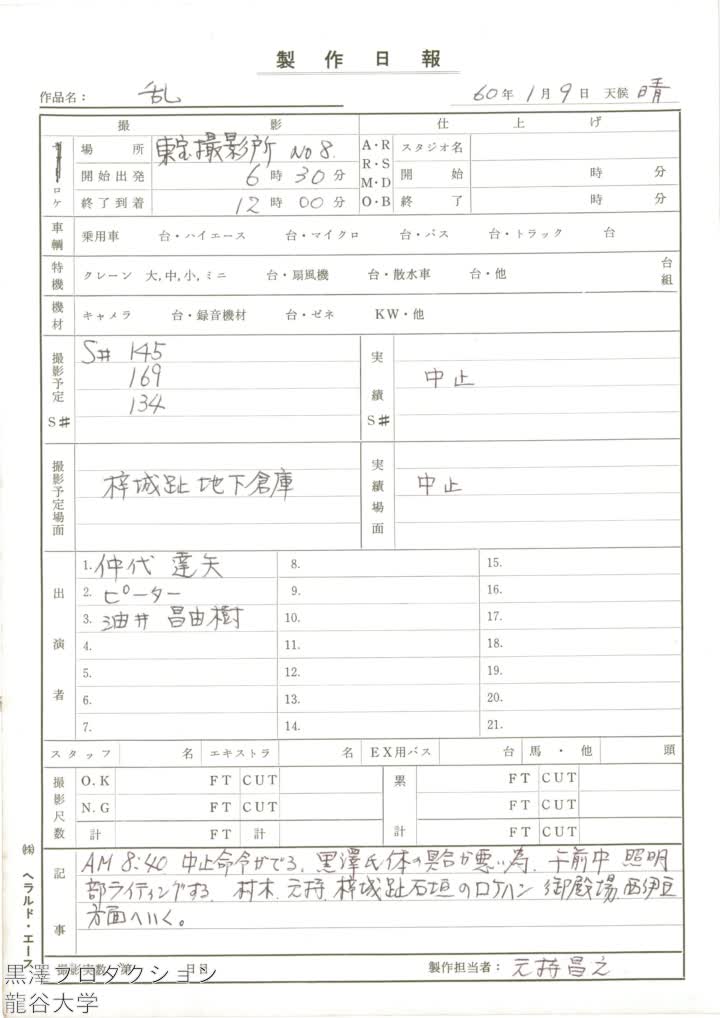 製作日報
作品名： 乱　60年 1月 9日 天候 晴
撮影　仕上げ
ロケ　場所　東宝撮影所 No 8.　A・R R・S M・D O・B　スタジオ名
開始出発　6時 30分　開始　時　分
終了到着　12時 00分　終了　時　分
車輌　乗用車　台・ハイエース　台・マイクロ　台・バス　台・トラック　台
特機　クレーン 大,中,小,ミニ　台・扇風機　台・散水車　台・他　台組
機材　キャメラ　台・録音機材　台・ゼネ　KW・他
撮影予定 S#　S# 145　実績 S#　中止
169
134
撮影予定場面　梓城趾 地下倉庫　実績場面　中止
出演者
1. 仲代 達矢　8.　15.
2. ピーター　9.　16.
3. 油井 昌由樹　10.　17.
4.　11.　18.
5.　12.　19.
6.　13.　20.
7.　14.　21.
スタッフ　名　エキストラ　名　EX用バス　台　馬・他　頭
撮影尺数　O.K　FT　CUT　累計　FT　CUT
N.G　FT　CUT　FT　CUT
計　FT　計　FT　CUT
記事　AM 8:40 中止命令がでる。黒澤氏体の具合が悪い為、午前中 照明
部ライティングする。村木、元持、梓城趾石垣のロケハン 御殿場、西伊豆
方面へいく。
撮影実数 第　日目　製作担当者： 元持昌之
㈱ ヘラルド・エース
黒澤プロダクション
龍谷大学